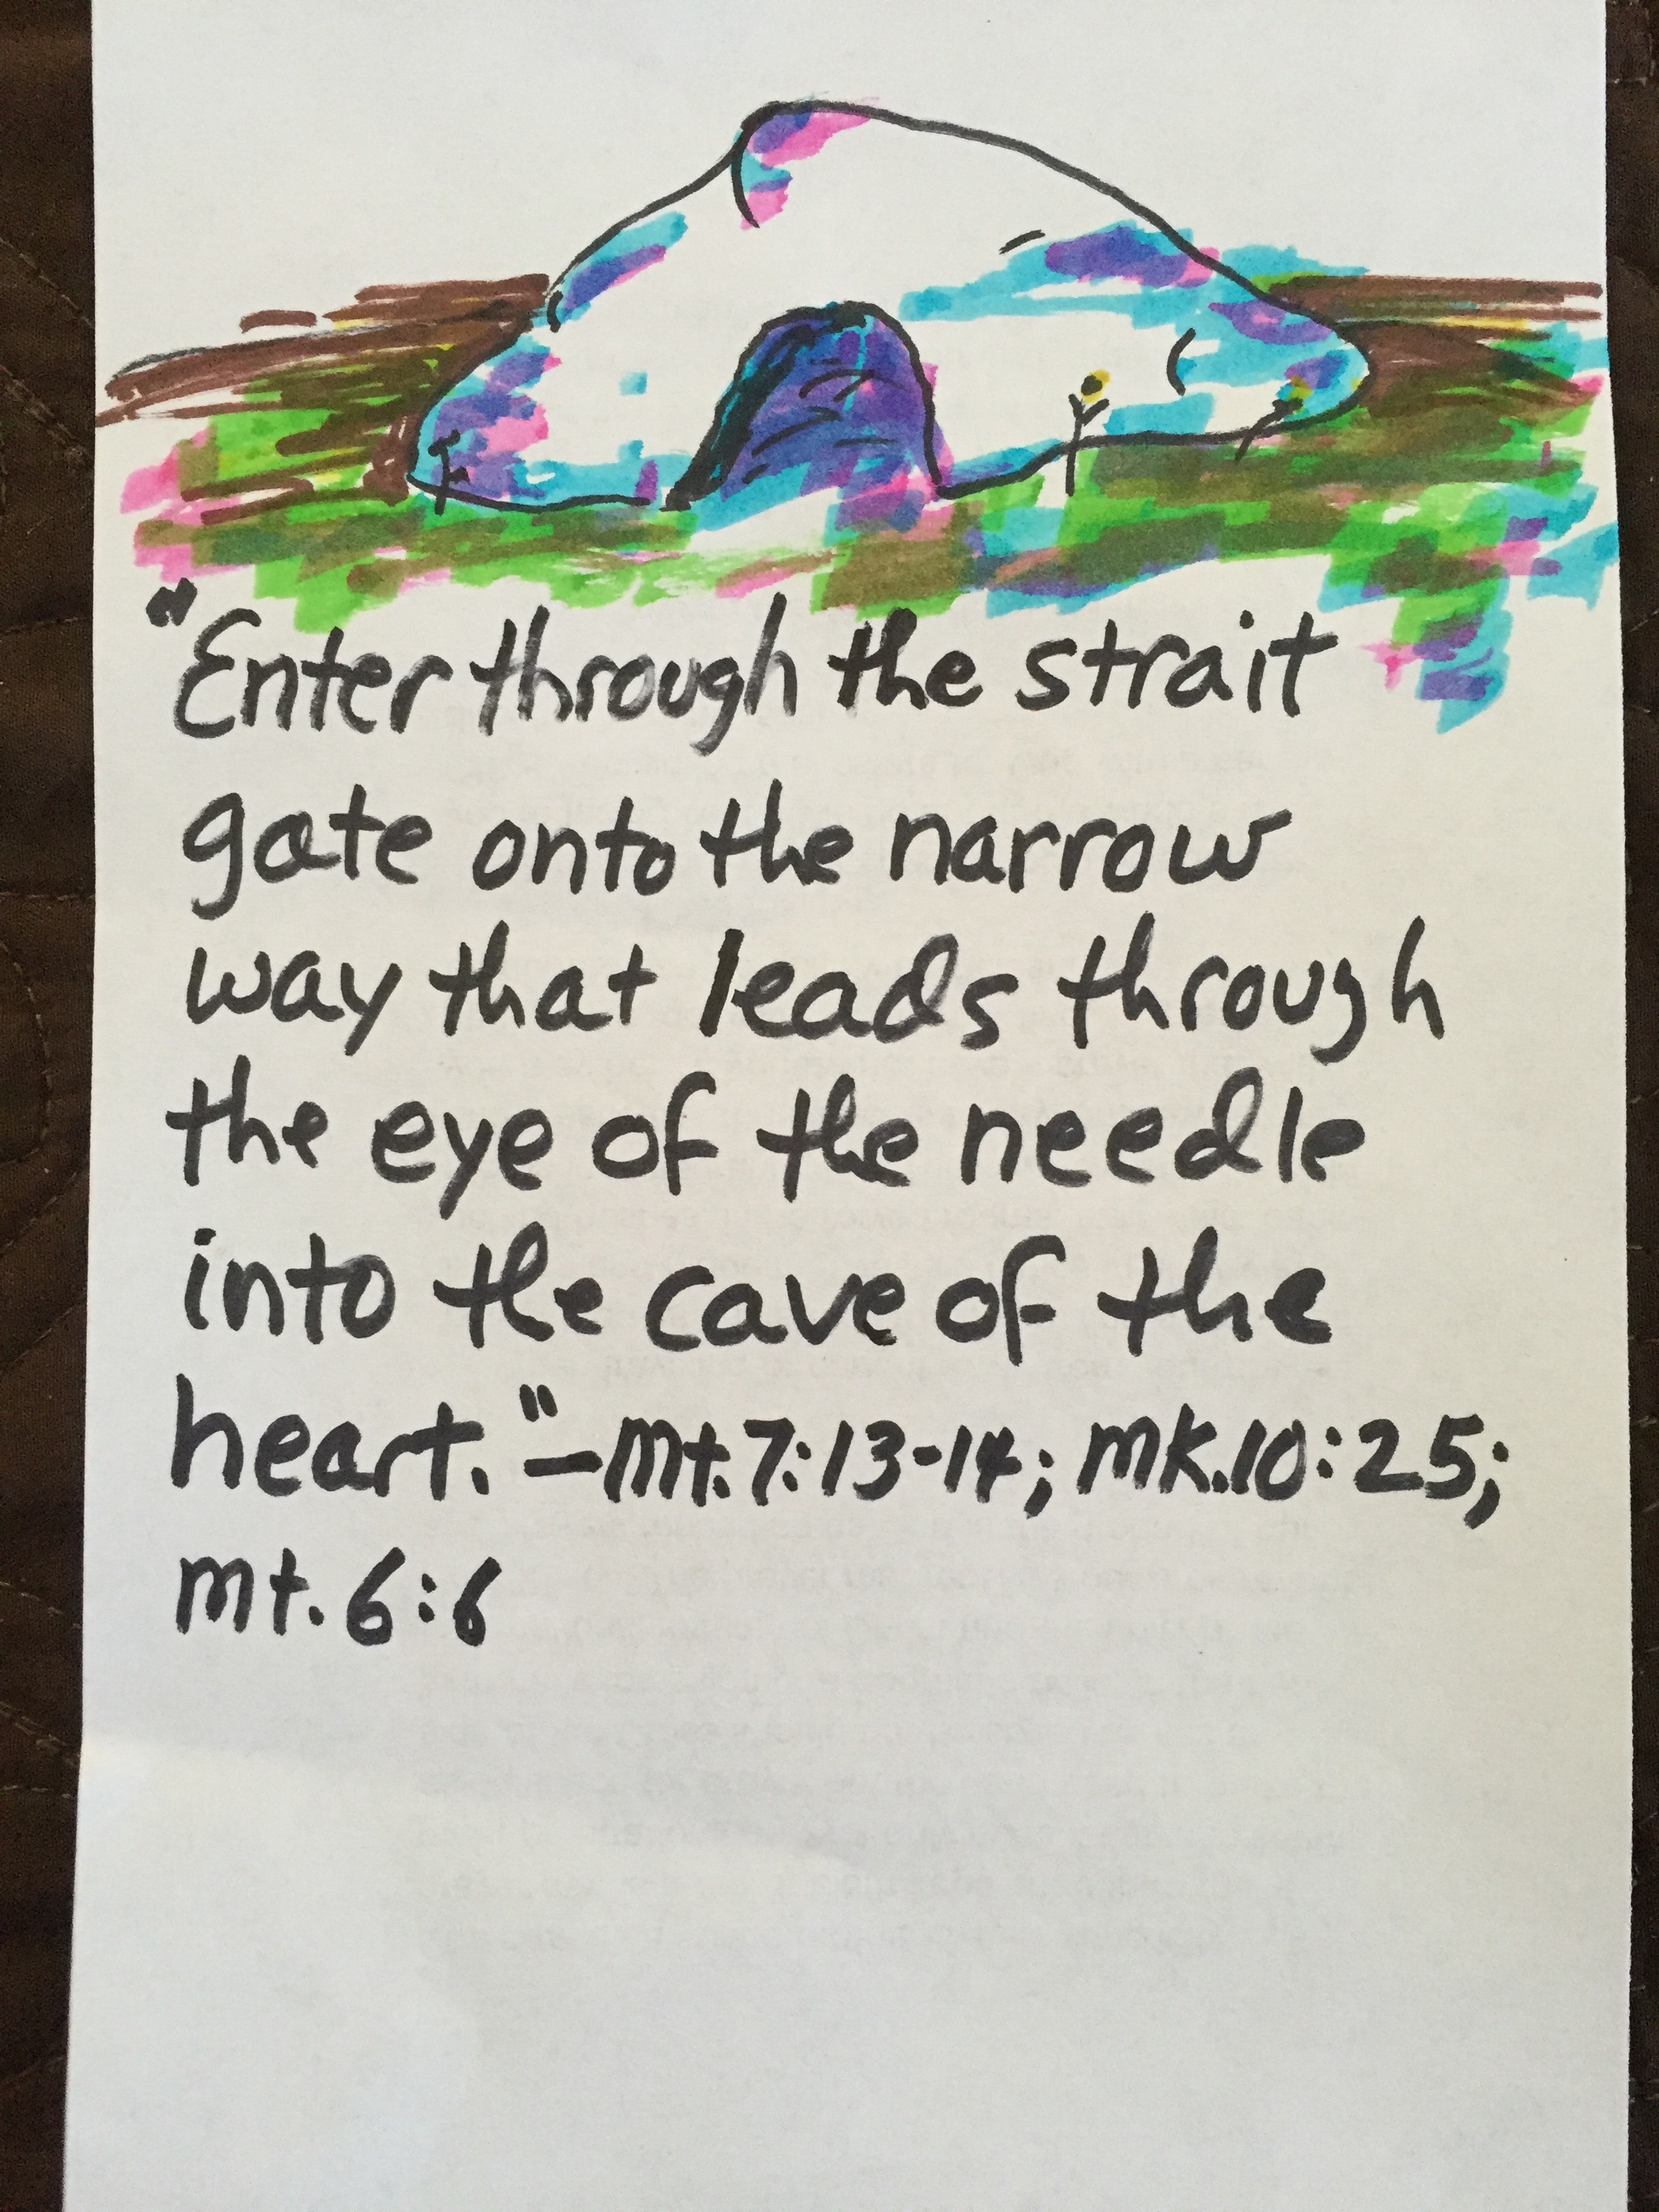 "Enter through the strait
gate onto the narrow
way that leads through
the eye of the needle
into the cave of the
heart."—Mt.7:13-14; Mk.10:25;
Mt. 6:6